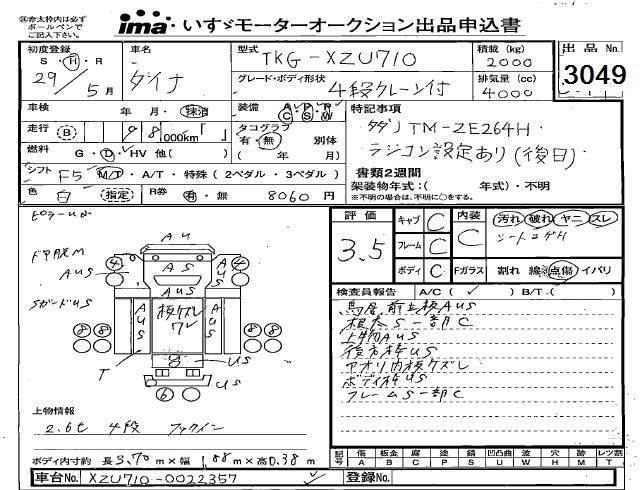 ※赤太枠内は必ず
ボールペンで
ご記入下さい。
ima いすゞモーターオークション出品申込書
初度登録 車名 型式 TKG-XZU710 積載(kg) 2000 出品No.
S・H・R 29年5月 ダイナ グレード・ボディ形状 4段クレーン付 排気量(cc) 4000 3049
車検 年 月・抹消 装備 A P P C S W 特記事項
走行 B 98,000km「 」 タコグラフ 有・無 別体 タダノ TM-ZE264H
燃料 G・D・HV 他( ) ( 年 月) ラジコン設定あり(後日)
シフト F5 M/T・A/T・特殊(2ペダル・3ペダル) 書類2週間
色 白 (指定) R券 有・無 8060円 架装物年式:( 年式)・不明
※不明の場合は、不明に○をする。
評価 3.5 キャブ C 内装 C 汚れ 破れ ヤニ スレ
フレーム C シートコゲH
ボディ C Fガラス 割れ 線 点傷 イバリ
AUS
④ AUS ④
AUS AUS
SガードUS
AUS 板ズレワレ AUS
⑧⑧ ⑧⑧
T US
US
⑥
検査員報告 A/C( ✓ ) B/T.( )
鳥居前立板AUS
根太S一部C
上物AUS
後方枠US
アオリ内板ケズレ
ボディ枠US
フレームS一部C
上物情報
2.6t 4段 フックイン
ボディ内寸約 長3.70m×幅1.88m×高0.38m
記号 傷 A 板金 B 腐 C 塗 P 錆 S 凹凸凹 U 波 W 穴 H 跡 M レツ割 T
車台No. XZU710-0022357 登録No.